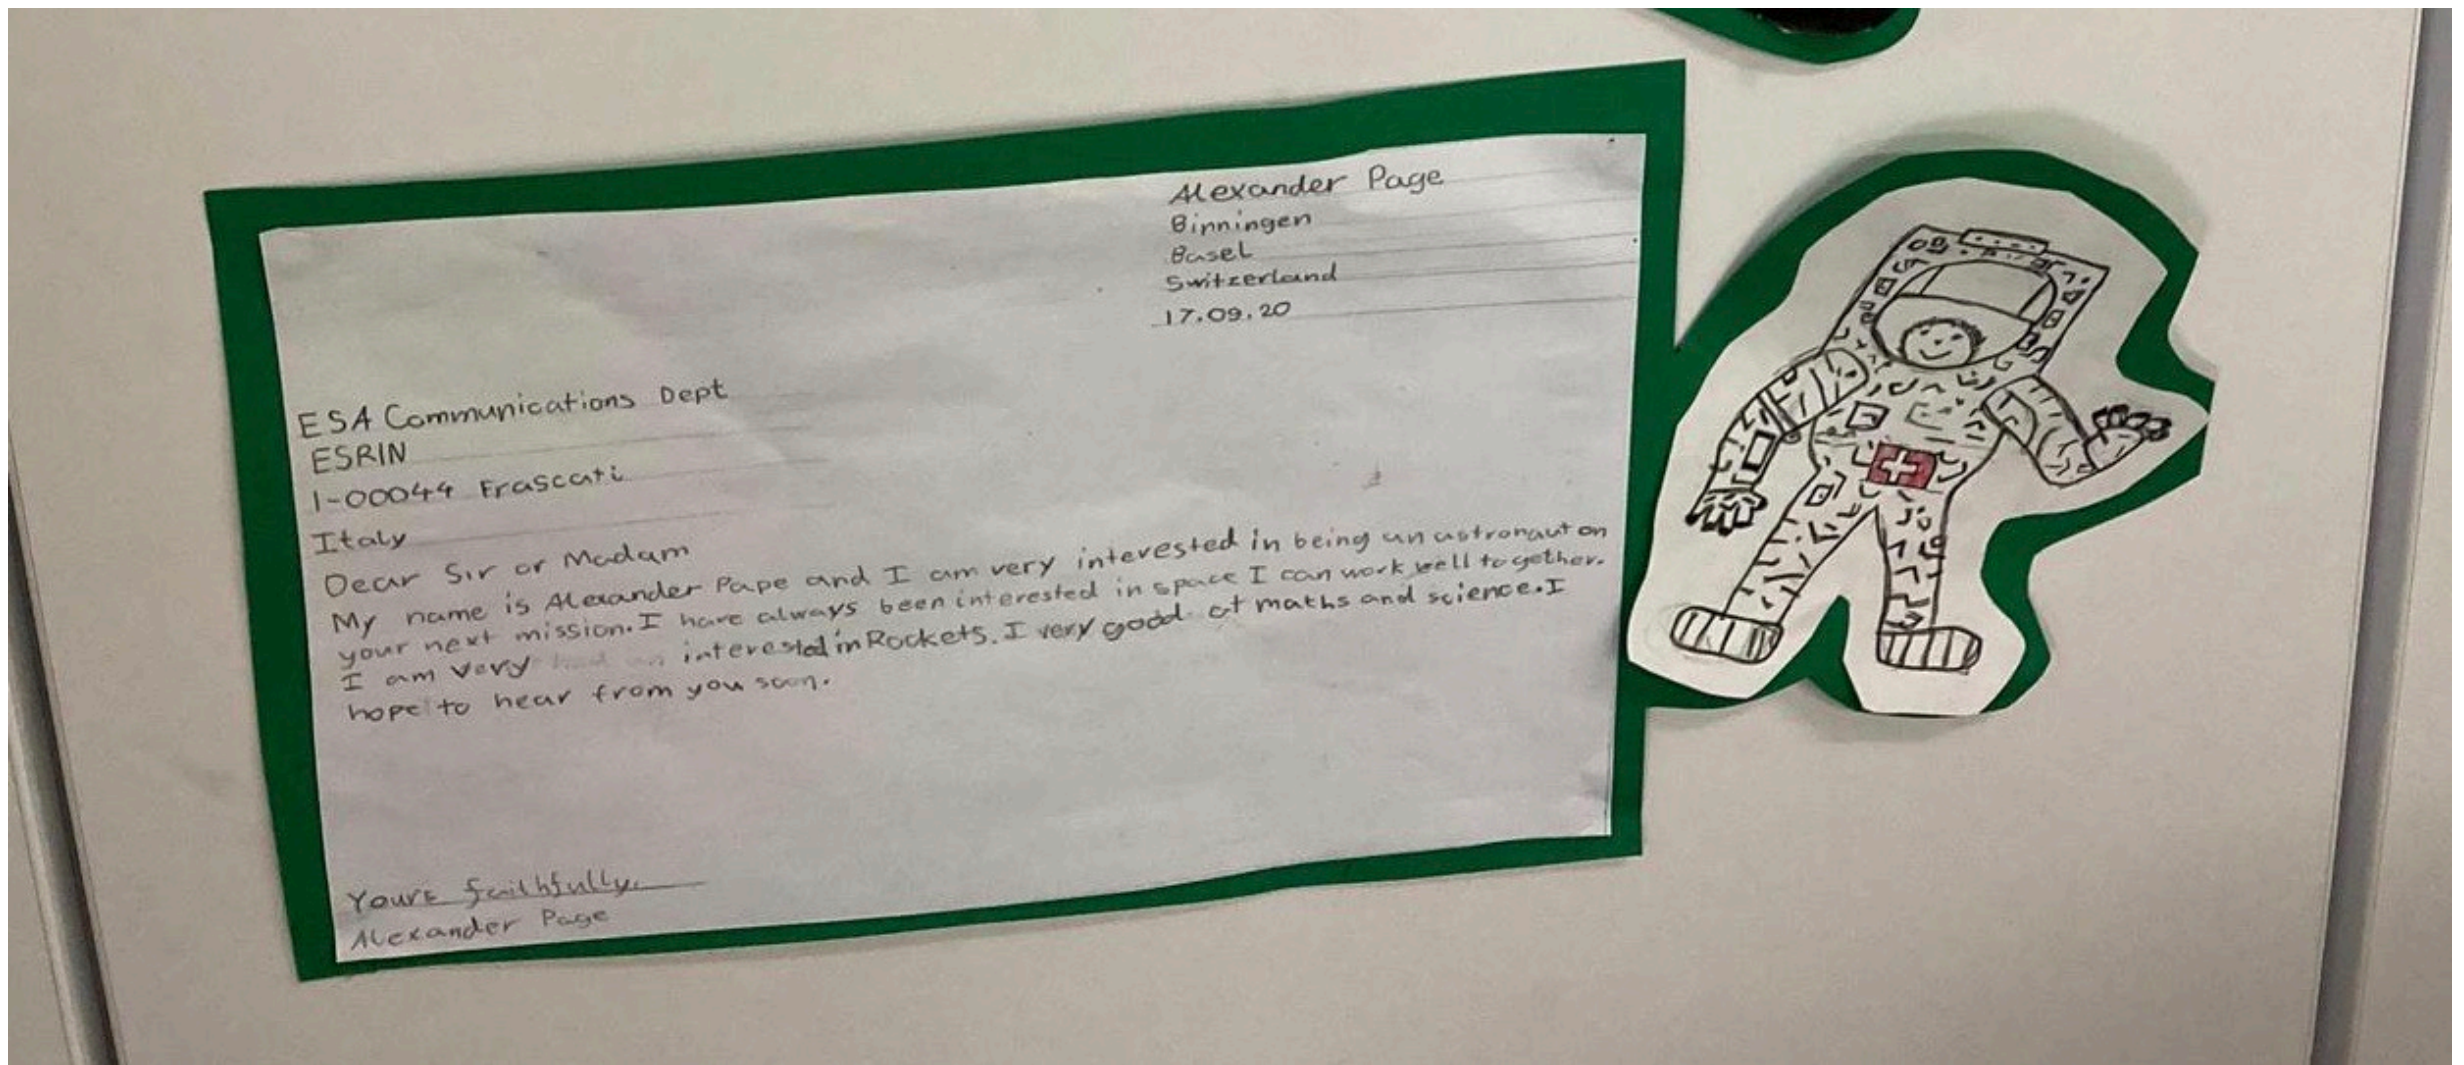 Alexander Page
Binningen
Basel
Switzerland
17.09.20
ESA Communications Dept
ESRIN
I-00044 Frascati
Italy
Dear Sir or Madam
My name is Alexander Pape and I am very interested in being an astronaut on
your next mission. I have always been interested in space I can work well together.
I am very interested in Rockets. I very good at maths and science. I
hope to hear from you soon.
Yours faithfully.
Alexander Page